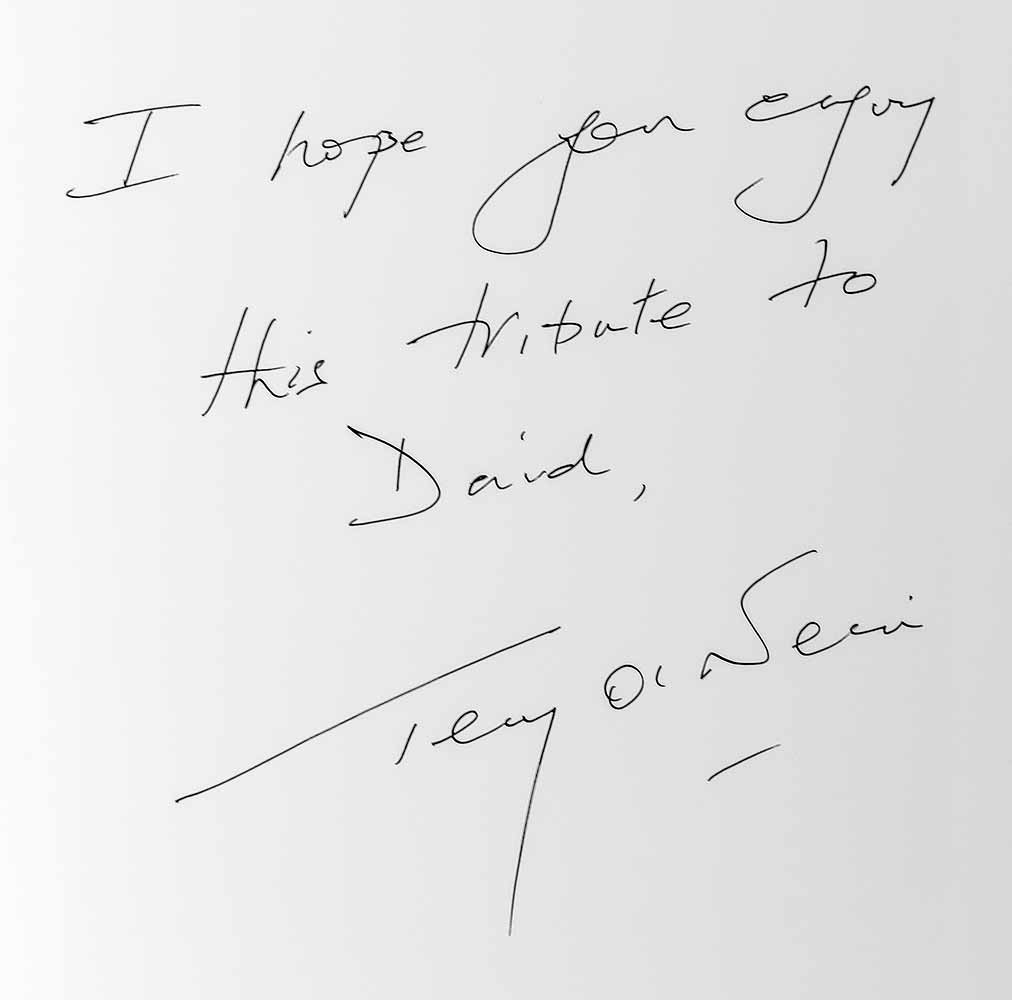 I hope you enjoy
this tribute to
David,
Terry O'Neill